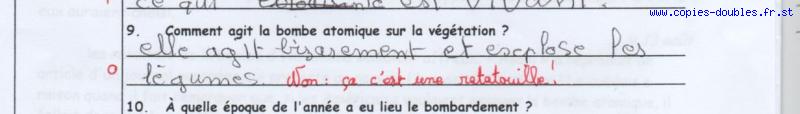 www.copies-doubles.fr.st
ce qui est vivant.
9. Comment agit la bombe atomique sur la végétation ?
elle agit bisarement et explose les
0 légumes. Non : ça c'est une ratatouille !
10. À quelle époque de l'année a eu lieu le bombardement ?